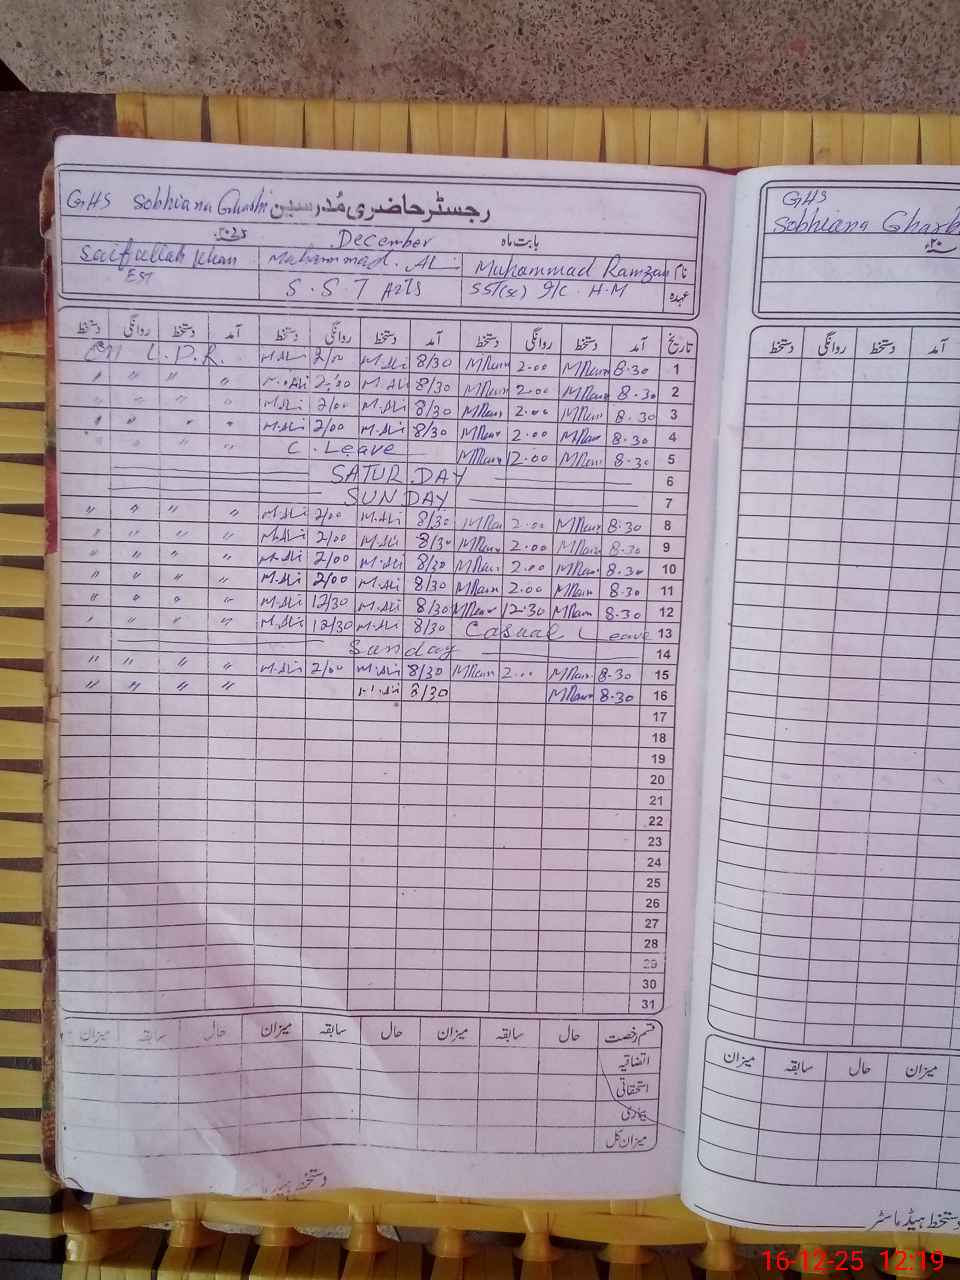 GHS Sobhiana Gharbi رجسٹر حاضری مُدرسین
بابت ماہ December ۲۰۲۵ء
نام Muhammad Ramzan Muhammad. Ali Saifullah Khan
عہدہ SST(sc) I/C H.M S.S T Arts EST
تاریخ آمد دستخط روانگی دستخط آمد دستخط روانگی دستخط آمد دستخط روانگی دستخط
1 8.30 MRam 2.00 MRam 8/30 M.Ali 2/00 M.Ali L.P.R.
2 8.30 MRam 2.00 MRam 8/30 M.Ali 2/00 M.Ali 〃 〃 〃 〃
3 8.30 MRam 2.00 MRam 8/30 M.Ali 2/00 M.Ali 〃 〃 〃 〃
4 8.30 MRam 2.00 MRam 8/30 M.Ali 2/00 M.Ali 〃 〃 〃 〃
5 8.30 MRam 12.00 MRam C.Leave 〃 〃 〃 〃
6 SATURDAY
7 SUNDAY
8 8.30 MRam 2.00 MRam 8/30 M.Ali 2/00 M.Ali 〃 〃 〃 〃
9 8.30 MRam 2.00 MRam 8/30 M.Ali 2/00 M.Ali 〃 〃 〃 〃
10 8.30 MRam 2.00 MRam 8/30 M.Ali 2/00 M.Ali 〃 〃 〃 〃
11 8.30 MRam 2.00 MRam 8/30 M.Ali 2/00 M.Ali 〃 〃 〃 〃
12 8.30 MRam 12.30 MRam 8/30 M.Ali 12/30 M.Ali 〃 〃 〃 〃
13 Casual Leave 8/30 M.Ali 12/30 M.Ali 〃 〃 〃 〃
14 Sunday
15 8.30 MRam 2.00 MRam 8/30 M.Ali 2/00 M.Ali 〃 〃 〃 〃
16 8.30 MRam 8/30 M.Ali 〃 〃 〃 〃
17
18
19
20
21
22
23
24
25
26
27
28
29
30
31
قسم رخصت حال سابقہ میزان حال سابقہ میزان حال سابقہ میزان
اتفاقیہ
استحقاقی
بیماری
میزان کل
دستخط ہیڈ ماسٹر
GHS
Sobhiana Gharb
۲۰ء
آمد دستخط روانگی دستخط
میزان حال سابقہ میزان
دستخط ہیڈ ماسٹر
16-12-25 12:19